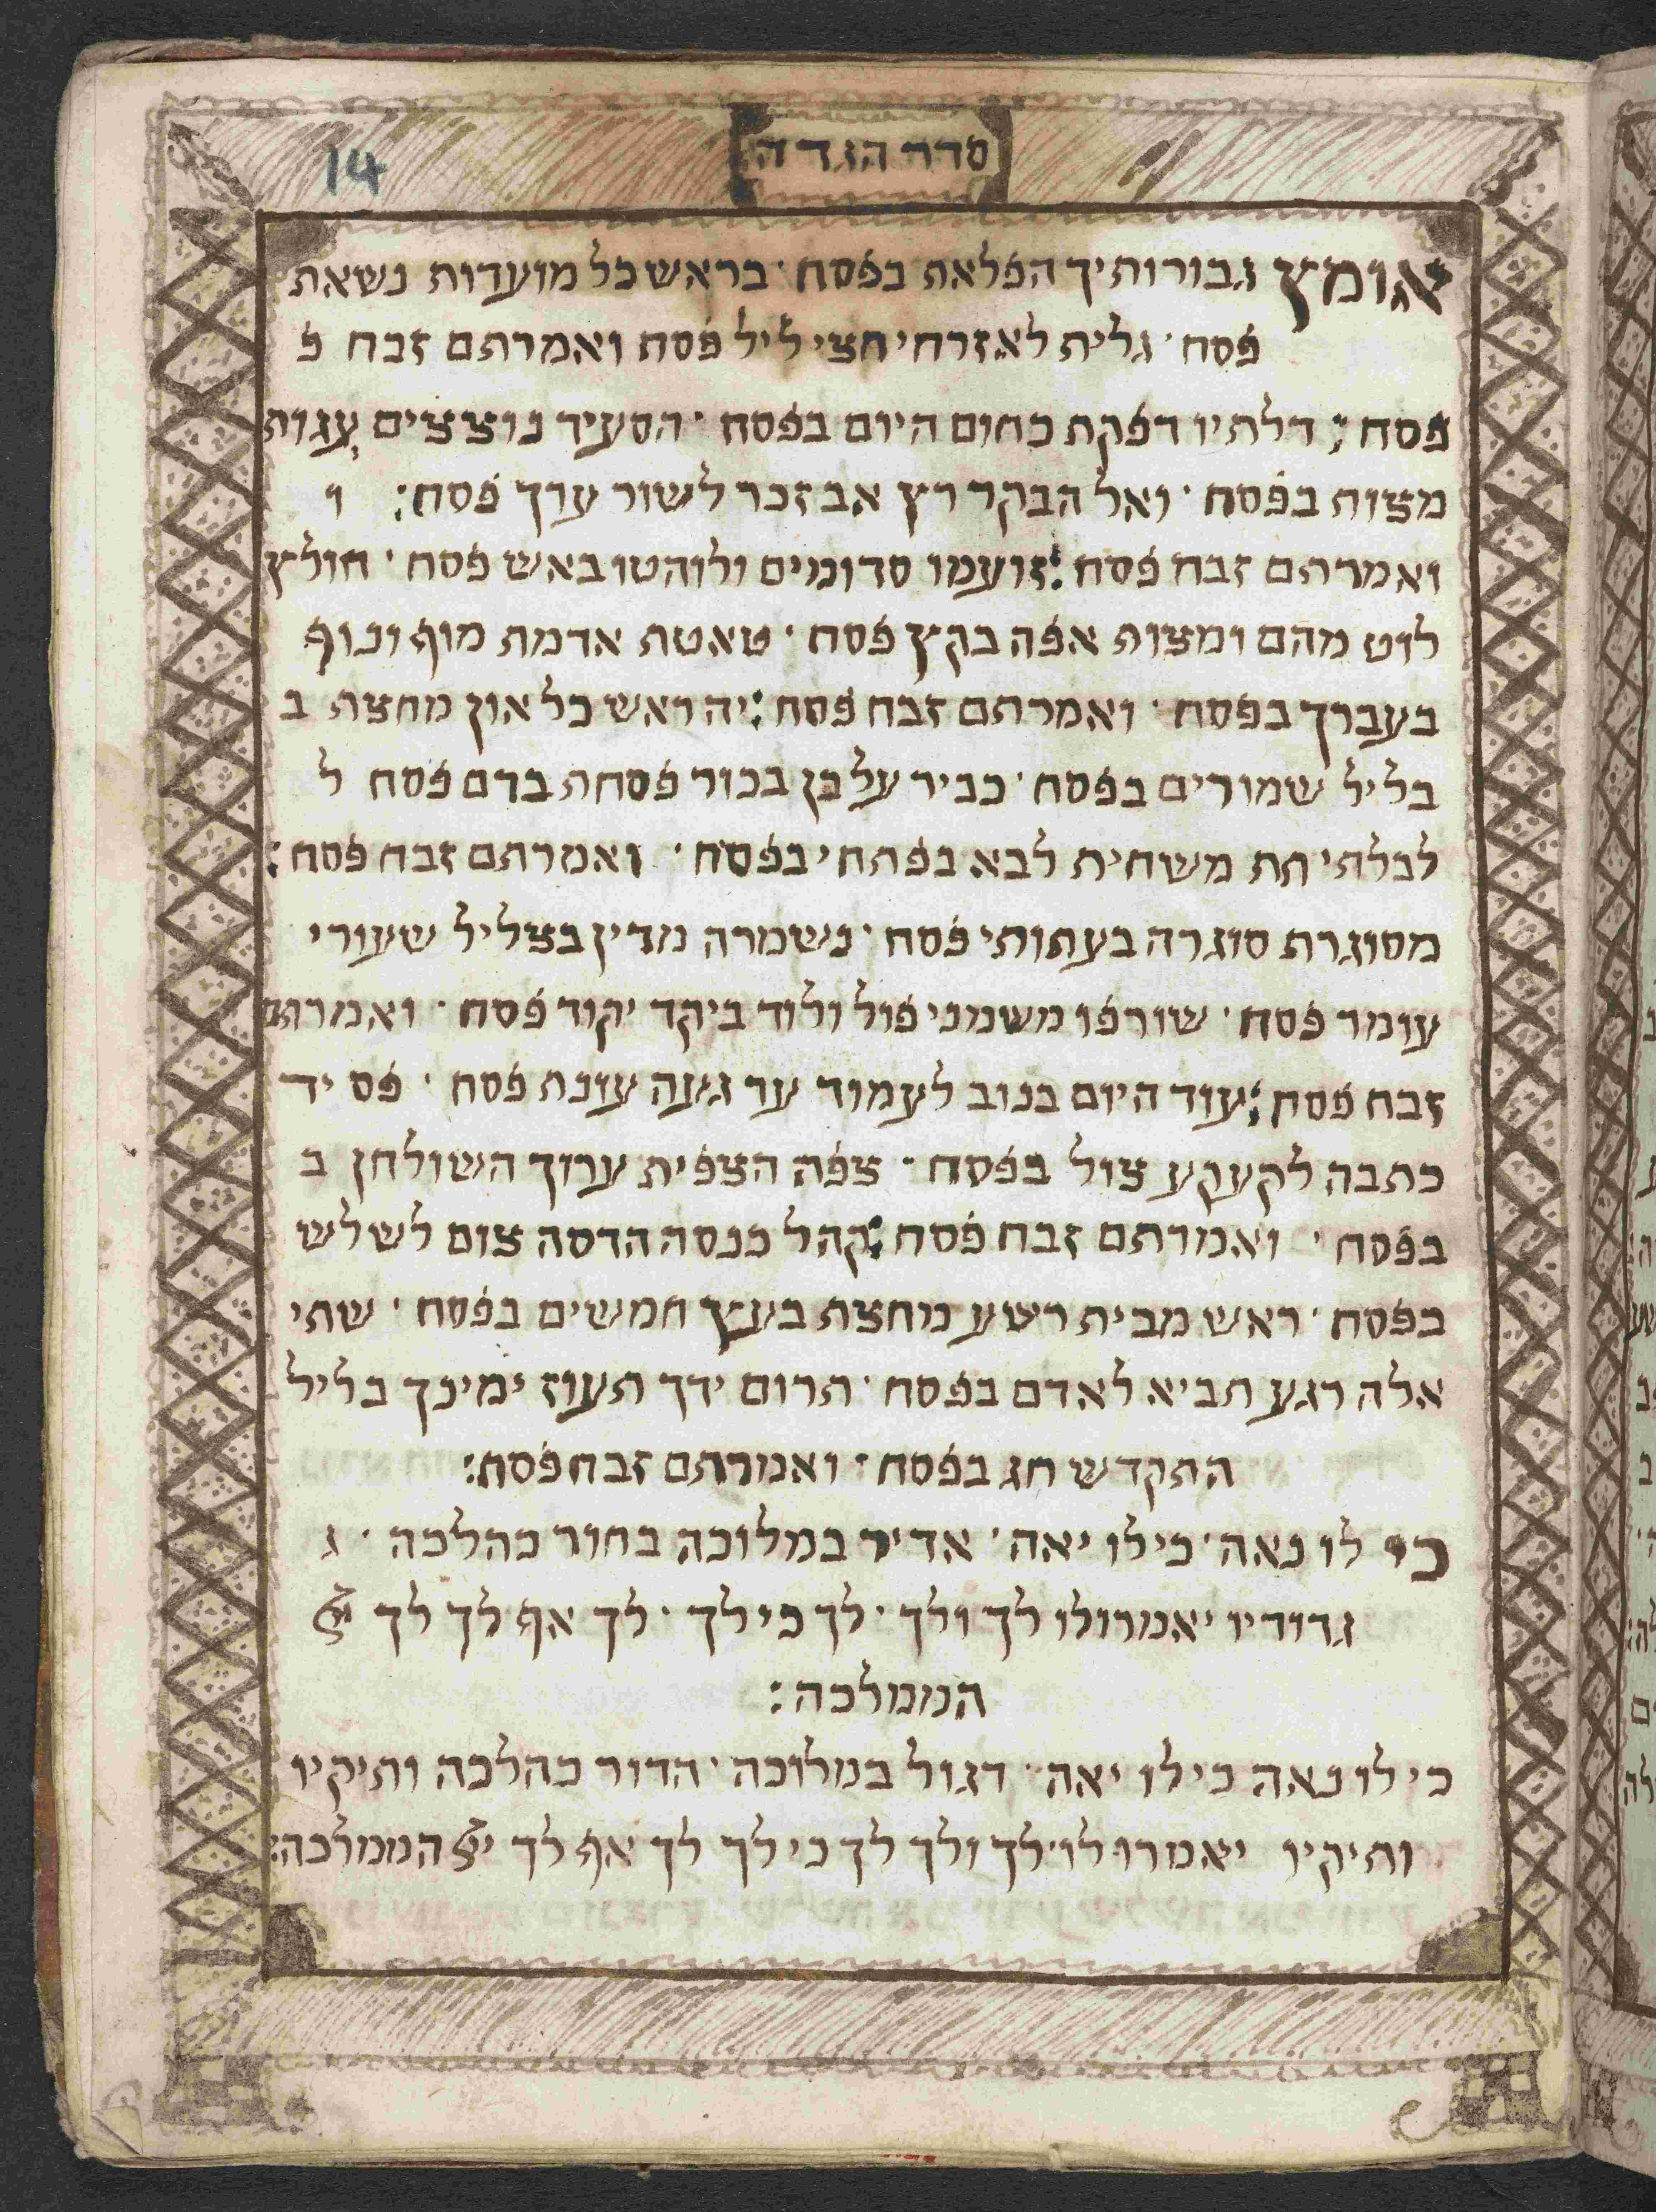 סדר הגדה
14
אומץ גבורותיך הפלאת בפסח · בראש כל מועדות נשאת
פסח · גלית לאזרחי חצי ליל פסח ואמרתם זבח פ
פסח : דלתיו דפקת כחום היום בפסח · הסעיד נוצצים עגות
מצות בפסח · ואל הבקר רץ אב זכר לשור ערך פסח : ו
ואמרתם זבח פסח : זועמו סדומים ולוהטו באש פסח · חולץ
לוט מהם ומצות אפה בקץ פסח · טאטת אדמת מוף ונוף
בעברך בפסח · ואמרתם זבח פסח : יה ראש כל און מחצת ב
בליל שמורים בפסח · כביר על בן בכור פסחת בדם פסח ל
לבלתי תת משחית לבא בפתחי בפסח · ואמרתם זבח פסח :
מסוגרת סוגרה בעתותי פסח · נשמרה מדין בצליל שעורי
עומר פסח · שורפו משמני פול ולוד ביקד יקוד פסח · ואמרתם
זבח פסח : עוד היום בנוב לעמוד עד געה עונת פסח · פס יד
כתבה לקעקע צול בפסח · צפה הצפית ערוך השולחן ב
בפסח · ואמרתם זבח פסח : קהל כנסה הדסה צום לשלש
בפסח · ראש מבית רשע מחצת בעץ חמשים בפסח · שתי
אלה רגע תביא לאדם בפסח · תרום ידך תעוז ימינך בליל
התקדש חג בפסח · ואמרתם זבח פסח :
כי לו נאה · כי לו יאה · אדיר במלוכה בחור כהלכה · ג
גדודיו יאמרו לו לך ולך · לך כי לך · לך אף לך לך
הממלכה :
כי לו נאה כי לו יאה · דגול במלוכה · הדור כהלכה ותיקיו
ותיקיו יאמרו לו · לך ולך לך כי לך לך אף לך הממלכה :